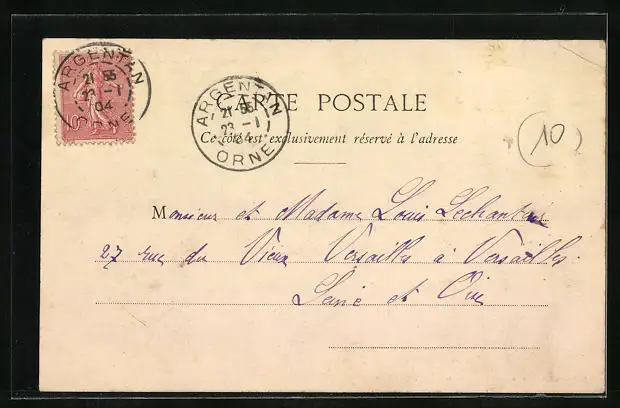 ARGENTAN
21 55
23 - 1
04
ORNE
10
ARGENTAN
21 55
23 - 1
04
ORNE
CARTE POSTALE
Ce côté est exclusivement réservé à l'adresse
10
Monsieur et Madame Louis
27 rue du Vieux Versailles à Versailles.
Seine et Oise